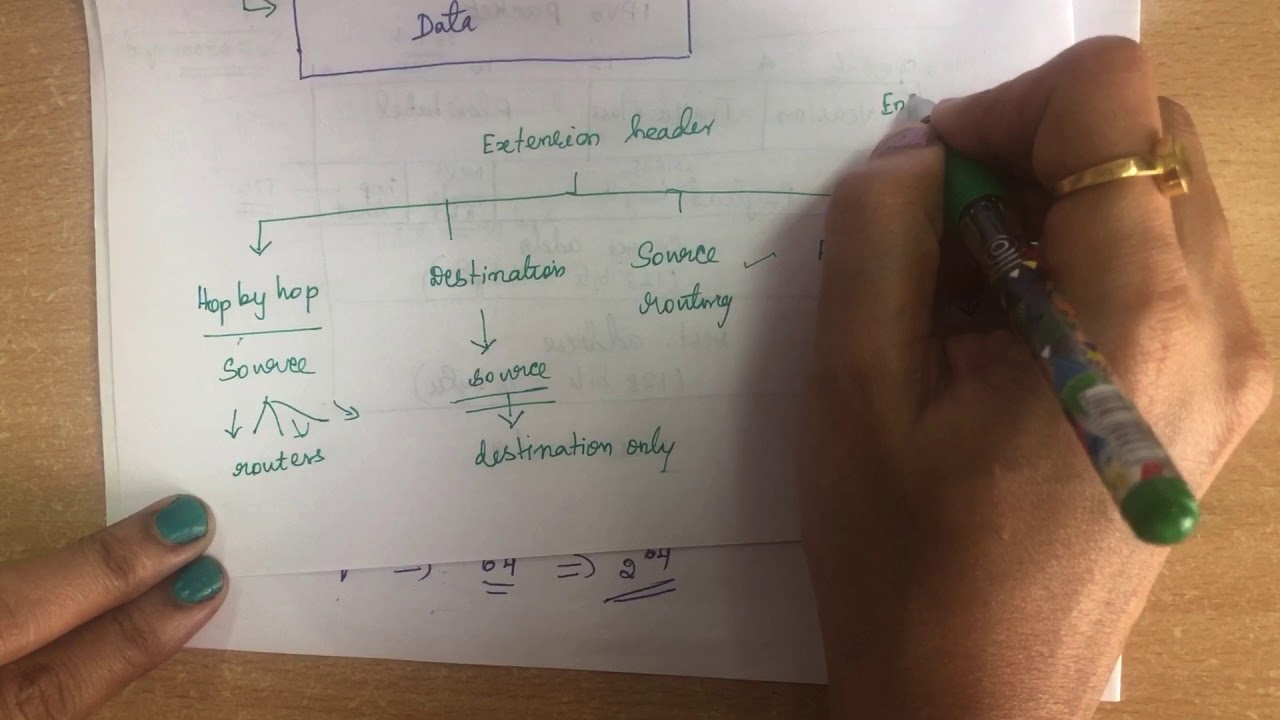 Data
Extension header
En
Hop by hop
Destination
Source
routing
Source
source
routers
destination only
64 => 2^64